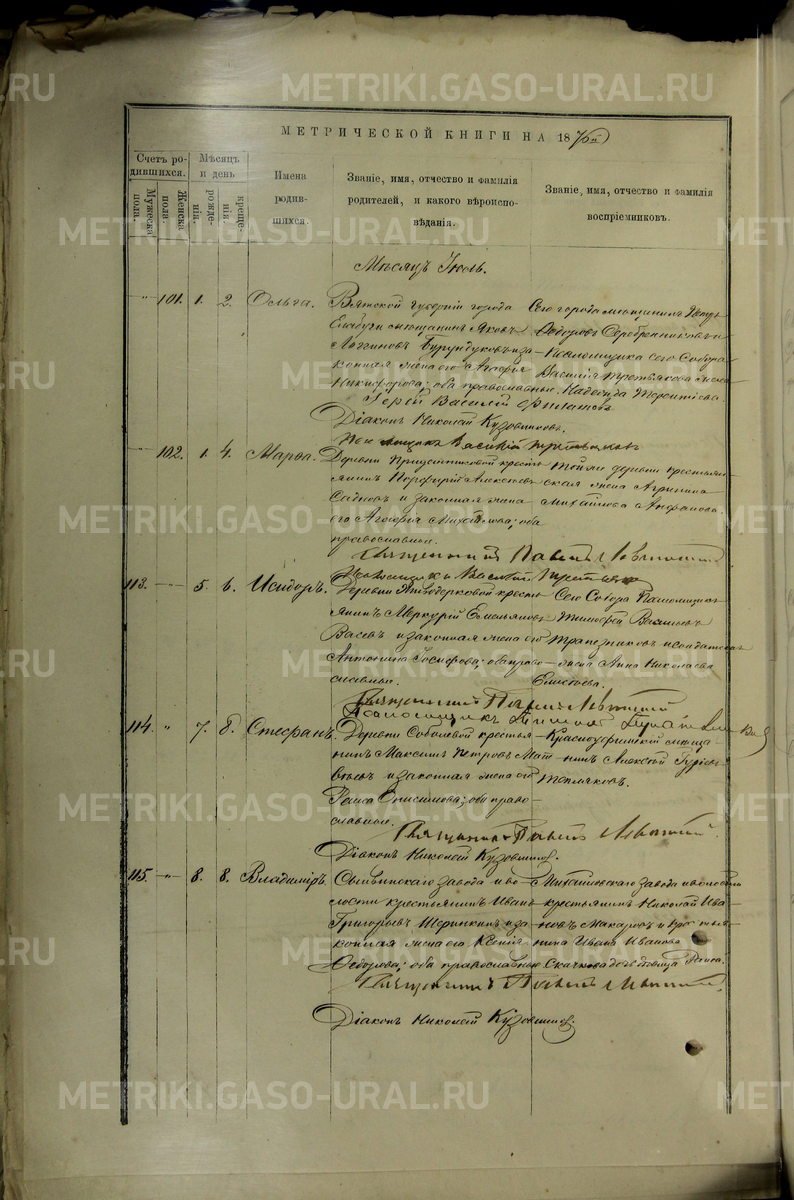 METRIKI.GASO-URAL.RU
МЕТРИЧЕСКОЙ КНИГИ НА 1876й
Счетъ ро-
дившихся.
Мужеска
пола.
Женска
пола.
Мѣсяцъ
и день
рожде-
нія.
креще-
нія.
Имена
родив-
шихся.
Званіе, имя, отчество и фамилія
родителей, и какого вѣроиспо-
вѣданія.
Званіе, имя, отчество и фамилія
воспріемниковъ.
Мѣсяцъ Іюль.
101. 1. 2. Ольга.
Вятской губерніи города
Елабуги мѣщанинъ Яковъ
Логгиновъ Бурундуковъ и за-
конная жена его Агафія
Никифорова; оба православные.
Сего города мѣщанинъ Петръ
Ѳедоровъ Серебренниковъ и
Псаломщика сего Собора
Василія Третьякова жена
Надежда Терентіева
Іерей Василій Филатовъ
Діаконъ Николай Кузовниковъ.
Василій Третьяковъ
102. 1. 4. Марѳа.
Деревни крестья-
янинъ Порфирій Алексѣевъ
и законная жена
его Агафія Михайлова; оба
православные.
Той же деревни крестьян-
ская жена Агрипина
Михайлова
Священникъ Павелъ Левитскій
Псаломщикъ Василій Третьяковъ
113. 5. 6. Исидоръ.
Деревни крестья-
янинъ Меркурій Емельяновъ
Васевъ и законная жена его
Антонина Іосифова; оба право-
славные.
Сего Собора Псаломщикъ
Тимофей Васильевъ
Трапезниковъ и солдатская
жена Анна Николаева
Священникъ Павелъ Левитскій
Псаломщикъ
114. 7. 8. Стефанъ.
Деревни Соболевой крестья-
нинъ Максимъ Петровъ Мат-
вѣевъ и законная жена его
Раиса Онисимова; оба право-
славные.
Красноуфимскій мѣща-
нинъ Алексѣй Гурьевъ
Тепляковъ.
Священникъ Павелъ Левитскій.
Діаконъ Николай Кузовниковъ.
115. 8. 8. Владиміръ.
Сылвинскаго завода и во-
лости крестьянинъ Иванъ
Григорьевъ и за-
конная жена его Ксенія
Ѳедорова; оба православные
Михайловскаго завода и волости
крестьянинъ Николай Ива-
новъ Макаровъ и крестья-
нина Ивана Иванова
Скачкова дочь дѣвица Раиса.
Священникъ Павелъ Левитскій.
Діаконъ Николай Кузовниковъ.